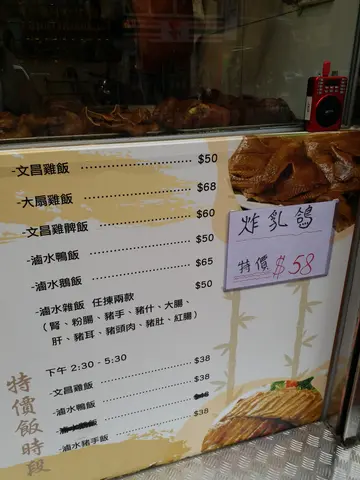 -文昌雞飯 $50
-大扇雞飯 $68
-文昌雞髀飯 $60
-滷水鴨飯 $50
-滷水鵝飯 $65
-滷水雜飯 任揀兩款 $50
(腎、粉腸、豬手、豬什、大腸、
肝、豬耳、豬頭肉、豬肚、紅腸)
炸乳鴿
特價 $58
特價飯時段
下午 2:30 - 5:30
-文昌雞飯 $38
-滷水鴨飯 $38
-滷水豬手飯 $38